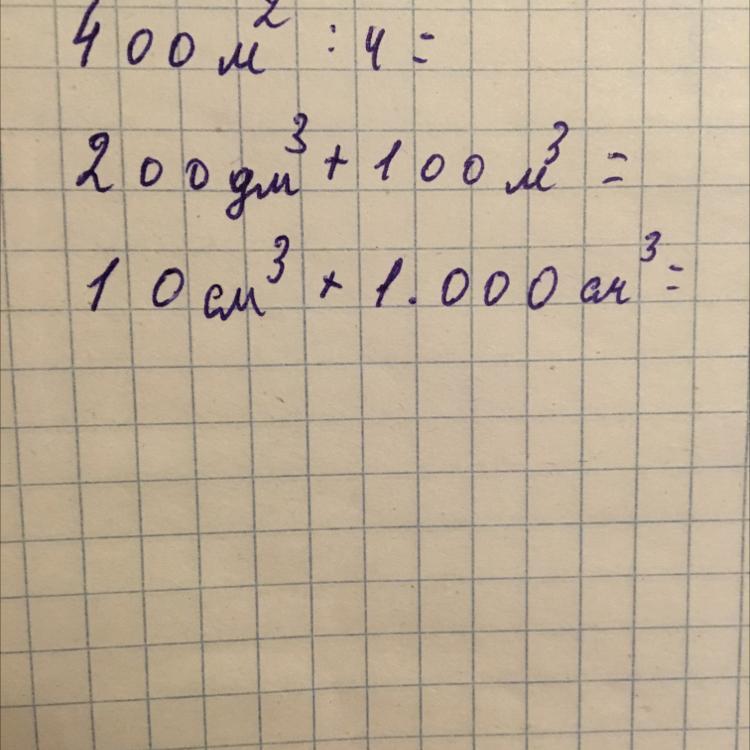 400 м² : 4 =
200 дм³ + 100 м³ =
10 см³ + 1.000 см³ =